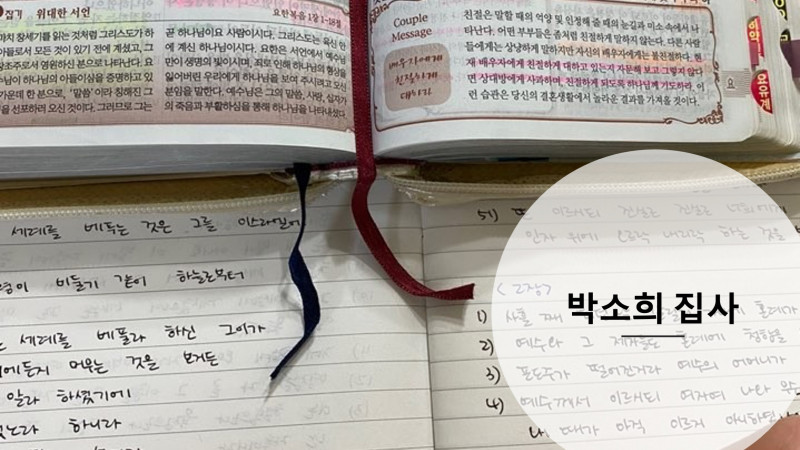 잡기 위대한 서언 요한복음 1장 1-18절
마치 창세기를 읽는 것처럼 그리스도가 하
아들로서 모든 것이 있기 전에 계셨고, 그
창조주로서 영원하신 본으로 나타난다. 요
예수님이 하나님의 아들이심을 증명하고 있
가운데 한 분으로, '말씀'이라 칭해진 그
을 선포하러 오신 것이다. 그러므로 그는
곧 하나님이요 사람이시다. 그리스도는 육신 안
에 계신 하나님이시다. 요한은 서언에서 예수님
만이 생명의 빛이시며, 죄로 인해 하나님의 형상을
잃어버린 우리에게 하나님을 보여 주시려고 오신
분임을 말한다. 예수님은 그의 말씀, 사랑, 십자가
의 죽음과 부활하심을 통해 하나님을 나타내셨다.
Couple
Message
배우자에게
친절하게
대하라
친절은 말할 때의 억양 및 인정해 줄 때의 눈길과 미소 속에서 나
타난다. 어떤 부부들은 좀처럼 친절하게 말하지 않는다. 다른 사람
들에게는 상냥하게 말하지만 자신의 배우자에게는 불친절하다. 현
재 배우자에게 친절하게 대하고 있는지 자문해 보고 그렇지 않다
면 상대방에게 사과하며, 친절하게 되도록 하나님께 기도하라. 이
런 습관은 당신의 결혼생활에서 놀라운 결과를 가져올 것이다.
요유계
세례를 베푸는 것은 그를 이스라엘에
비둘기 같이 하늘로부터
세례를 베풀라 하신 그이가
에든지 머무는 것을 보거든
알라 하셨기에
하니라
51) 또 이르시되 진실로 진실로 너희에게
인자 위에 오르락 내리락 하는 것을
<2장>
1) 사흘 째
2) 예수와 그 제자들도 혼례에 청함을
3) 포도주가 떨어진지라 예수의 어머니가
4) 예수께서 이르시되 여자여 나와 무슨
내 때가 아직 이르지 아니하였나
박소희 집사